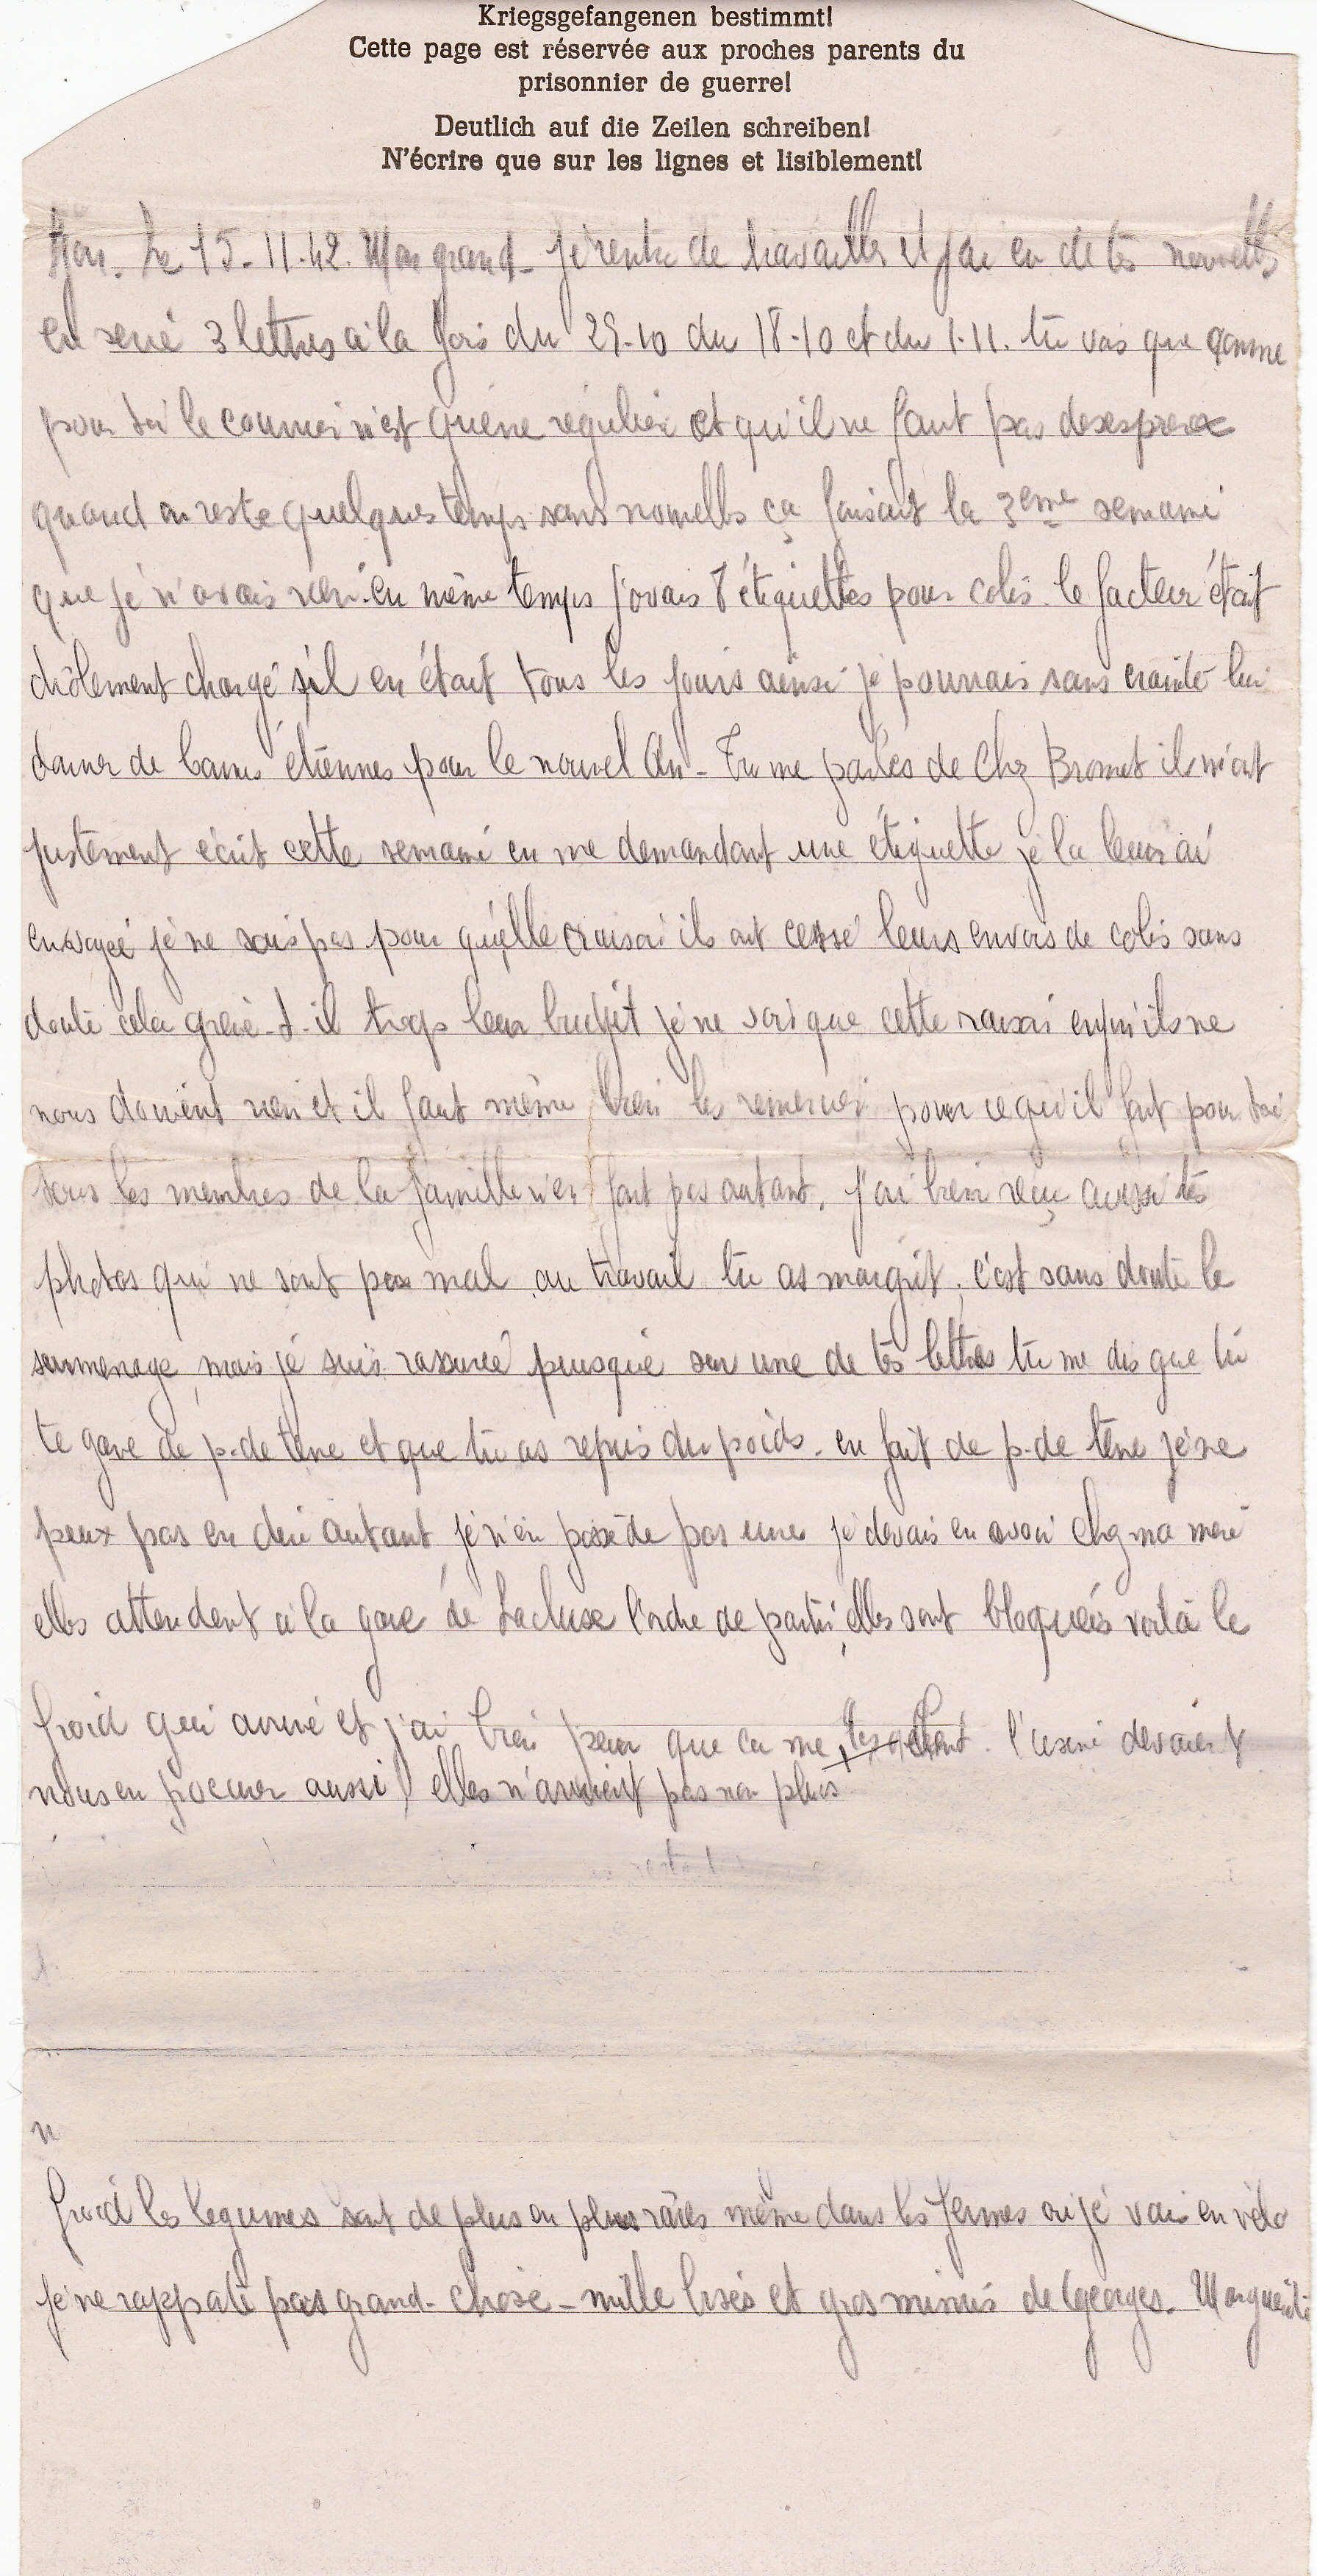 Kriegsgefangenen bestimmt!
Cette page est réservée aux proches parents du
prisonnier de guerre!
Deutlich auf die Zeilen schreiben!
N'écrire que sur les lignes et lisiblement!
Le 15-11-42. Mon grand - je rentre de travailler et j'ai eu de tes nouvelles
en serie 3 lettres à la fois du 25-10 du 18-10 et du 1-11. tu vois que comme
pour toi le courrier n'est guère régulier et qu'il ne faut pas desesperer
quand on reste quelques temps sans nouvelles ça faisait la 3eme semaine
que je n'avais rien. en même temps j'avais 8 étiquettes pour colis. le facteur était
drôlement chargé s'il en était tous les jours ainsi je pourrais sans crainte lui
donner de bonnes étrennes pour le nouvel An - Tu me parles de Chez Bromet ils m'ont
justement écrit cette semaine en me demandant une étiquette je la leur ai
envoyée je ne sais pas pour quelle raison ils ont cessé leurs envois de colis sans
doute cela grève-t-il trop leur budget je ne vois que cette raison enfin ils ne
nous doivent rien et il faut même bien les remercier pour ce qu'il font pour toi
tous les membres de la famille n'en font pas autant. j'ai bien reçu aussi tes
photos qui ne sont pas mal au travail tu as maigrit. c'est sans doute le
surmenage, mais je suis rassurée puisque sur une de tes lettres tu me dis que tu
te gave de p-de terre et que tu as repris du poids. en fait de p-de terre je ne
peux pas en dire autant je n'en possède pas une je devais en avoir chez ma mère
elles attendent à la gare de Lacluse l'ordre de partir, elles sont bloquées voilà le
froid qui arrive et j'ai bien peur que ça me les . l'usine devaient
nous en procurer aussi, elles n'arrivent pas non plus
froid les legumes sont de plus en plus rares même dans les fermes où je vais en vélo
je ne rapporte pas grand-chose - mille bises et gros mimis de Georges. Marguerite